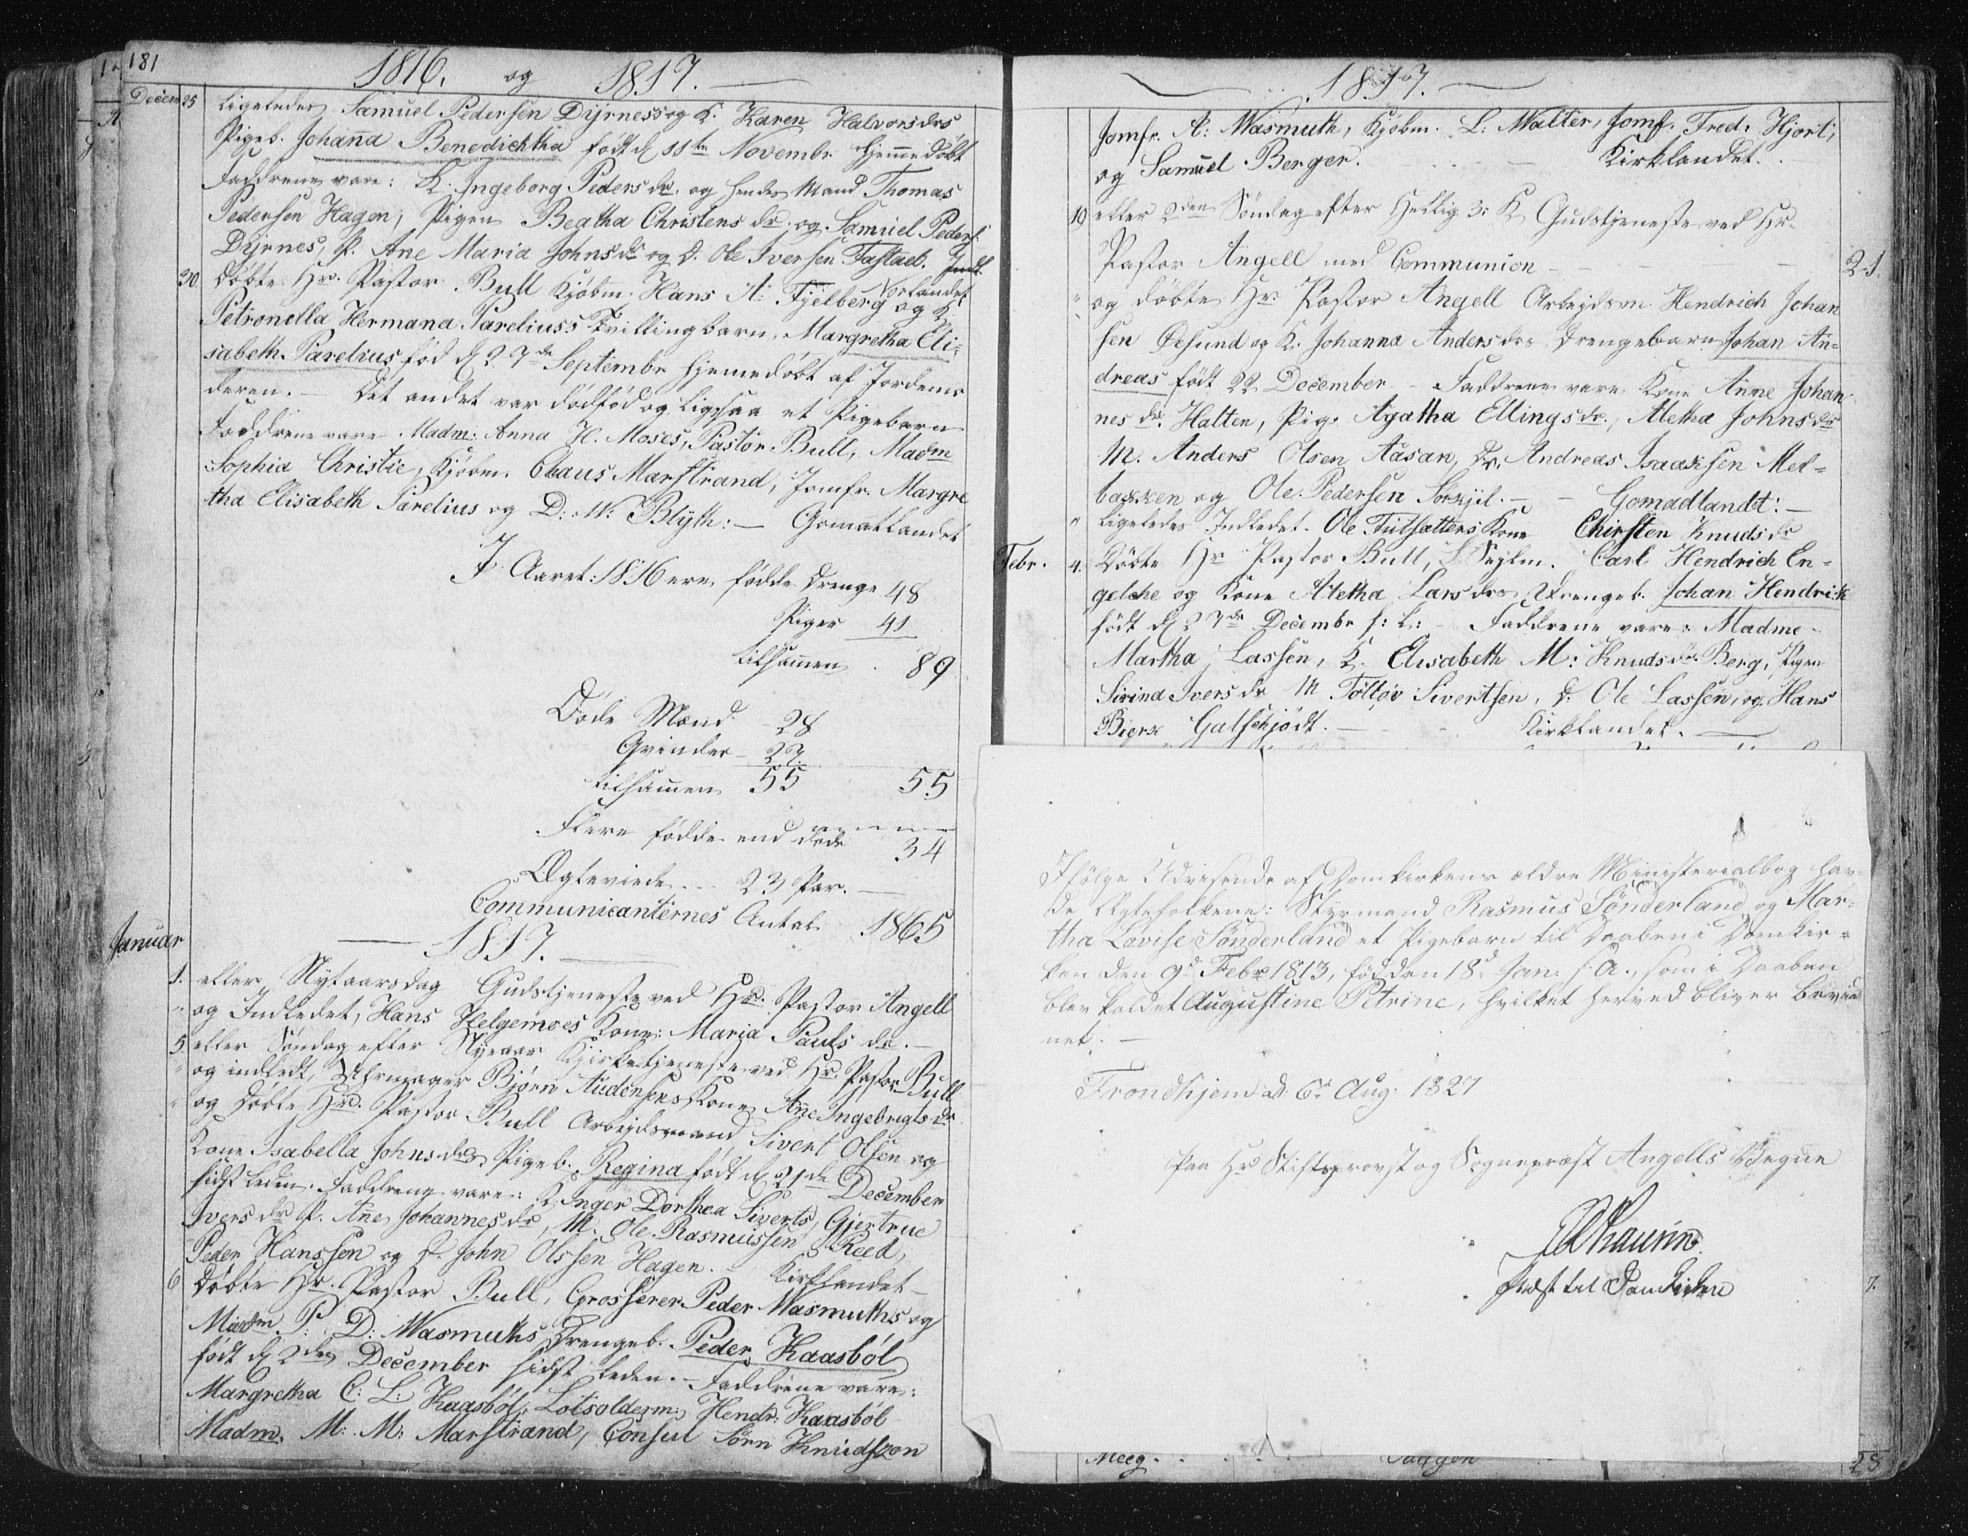 181
1816. og 1817.
Decem 25 ligeledes Samuel Pedersen Dyrness og K. Karen Halvorsdrs
Pigeb. Johanna Benedichtha født d 11te Novembr hjemmedøbt
Faddrene vare: K. Ingeborg Pedersdr. og hendes Mand Thomas
Pedersen Hagen, Pigen Beatha Christensdr. og Samuel Peders.
Dyrnes, P. Ane Maria Johnsdr og D. Ole Iversen Tastad. Indl.
Norlandet
30. Døbte Hr. Pastor Bull Kjøbm. Hans A: Fjelberg og K.
Petronella Hermana Pareliuss Tvillingbarn. Margretha Eli-
sabeth Parelius fød d 27de Septembr hjemedøbt af Jordemo
deren. – Det andet var dødfød og ligesaa et Pigebarn
Faddrene vare Madm: Anna H. Moses, Pastor Bull, Madm
Sophia Christie, Kjøbm. Claus Marstrand, Jomfr. Margre
tha Elisabeth Parelius og D: W: Blyth: – Gomatlandet
I Aaret: 1816 ere fødde Drenge 48
Piger 41
tilsamen . 89
Døde Mænd - 28
Qvinder - 27
tilsamen 55 55
Flere fødde end døde 34
Ægteviede... 23 Par. –
Communicanternes Antal 1865
1817.
Januar
1. eller Nytaarsdag Gudstjeneste ved Hr. Pastor Angell
" og Indledet, Hans Helgemoes Kone: Maria Paulsdr. –
5 eller Søndag efter Nyeaar Kjirketjeneste ved Hr. Pastor Bull
" og indledt, Uhrmager Bjørn Audensens Kone Ane Ingebrigtsdr
" og døbte Hr. Pastor Bull Arbeidsmand Sivert Olsen og
Kone Isabella Johnsdrs Pigeb. Regina født d 21de December
sidstleden. Faddrene vare: K. Inger Dorthea Siverts, Gjertrue
Iversdr P. Ane Johannesdr, M. Ole Rasmussen Reed,
Peder Hanssen og D. John Olssen Hagen. Kirklandet –
6 Døbte Hr. Pastor Bull, Grosserer Peder Wasmuths og
Madm P: D: Wasmuths Drengeb. Peder Kaasbøl
født d 2den December sidst leden. – Faddrene vare:
Margretha C: L: Kaasbøl, Lotsolderm. Hendr: Kaasbøl
Madm. M: M: Marstrand, Consul Sørn Knudszon
1817.
Jomfr. A: Wasmuth, Kjøbm. L: Walter, Jomf. Fred: Hjort,
og Samuel Berger. – Kirklandet.
19 eller 2den Søndag efter Hellig 3: K Gudstjeneste ved Hr.
Pastor Angell med Communion – 21.
" og døbte Hr: Pastor Angell Arbejdsm. Hendrich Johan
sen Øesund og K. Johanna Andersdrs Drengebarn Johan An-
dreas født 22 December – Faddrene vare Kone Anne Johan
nesdr. Halten, Pig. Agatha Ellingsdr., Aletha Johnsdr
M. Anders Olsen Aasan, Dr. Andreas Isaaksen Mel-
bakken og Ole Pedersen – Gomadlandt: –
" ligeledes Indledet. Ole Kone Chirsten Knudsdr
Febr. 4. Døbte Hr Pastor Bull, Sejlm. Carl Hendrich En-
gelche og Kone Aletha Larsdrs Drengeb. Johan Hendrik
født d 27de Decembr s: L: – Faddrene vare: Madme
Martha Lassen, K. Elisabeth M: Knudsdr. Berg, Pigen
Sirina Iversdr M Tølløv Sivertsen, D. Ole Lassen, og Hans
Bierx Galschjødt. – Kirklandet. –
Ifølge Udvisende af Domkirkens ældre Ministerialbog hav-
de Ægtefolkene: Styrmand Rasmus Sønderland og Mar-
tha Lovise Sønderland et Pigebarn til Daaben i Domkir-
ken den 9d Febr 1813, født den 18d Jan: s. A., som i Daaben
blev kaldet Augustine Petrine, hvilket herved bliver bevid
net. –
Trondhjem d. 6t Aug. 1827
Paa Hr Stiftsprovst og Sognepræst Angells Vegne
Thaurin
Præst til Domkirken
7.
Meeg.
25